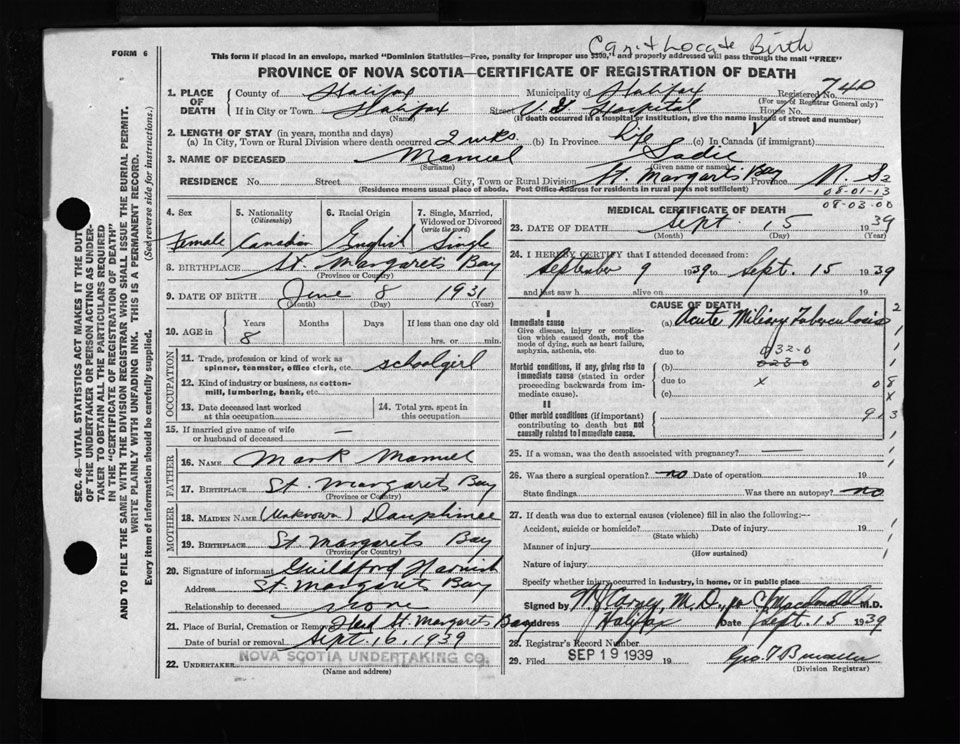 FORM 6
Can't Locate Birth
This form if placed in an envelope, marked "Dominion Statistics—Free, penalty for improper use $300," and properly addressed will pass through the mail "FREE"
PROVINCE OF NOVA SCOTIA—CERTIFICATE OF REGISTRATION OF DEATH
1. PLACE OF DEATH
County of Halifax Municipality of Halifax Registered No. 740
(For use of Registrar General only)
If in City or Town Halifax Street V. G. Hospital House No.
(Name) (If death occurred in a hospital or institution, give the name instead of street and number)
2. LENGTH OF STAY (in years, months and days)
(a) In City, Town or Rural Division where death occurred 2 wks. (b) In Province Life (c) In Canada (if immigrant)
3. NAME OF DECEASED Manuel Sadie
(Surname) (Given name or names)
RESIDENCE No. Street City, Town or Rural Division St. Margarets Bay Province N. S.
(Residence means usual place of abode. Post Office Address for residents in rural parts not sufficient)
08-01-13
08-03-00
4. Sex
Female
5. Nationality (Citizenship)
Canadian
6. Racial Origin
English
7. Single, Married, Widowed or Divorced (write the word)
Single
8. BIRTHPLACE St. Margarets Bay
(Province or Country)
9. DATE OF BIRTH June 8 1931
(Month) (Day) (Year)
10. AGE in Years Months Days If less than one day old
8 hrs. or min.
OCCUPATION
11. Trade, profession or kind of work as spinner, teamster, office clerk, etc. schoolgirl
12. Kind of industry or business, as cotton-mill, lumbering, bank, etc.
13. Date deceased last worked at this occupation
14. Total yrs. spent in this occupation
15. If married give name of wife or husband of deceased —
FATHER
16. NAME Mark Manuel
17. BIRTHPLACE St. Margarets Bay
(Province or Country)
MOTHER
18. MAIDEN NAME (Unknown) Dauphinee
19. BIRTHPLACE St. Margarets Bay
(Province or Country)
20. Signature of informant Guildford Harnish
Address St. Margarets Bay
Relationship to deceased none
21. Place of Burial, Cremation or Removal Head St. Margarets Bay
Date of burial or removal Sept. 16, 1939
22. UNDERTAKER NOVA SCOTIA UNDERTAKING CO.
(Name and address)
MEDICAL CERTIFICATE OF DEATH
23. DATE OF DEATH Sept. 15 1939
(Month) (Day) (Year)
24. I HEREBY CERTIFY that I attended deceased from:
September 9 1939 to Sept. 15 1939
and last saw h alive on 19
CAUSE OF DEATH
I
Immediate cause
Give disease, injury or complication which caused death, not the mode of dying, such as heart failure, asphyxia, asthenia, etc.
(a) Acute Miliary Tuberculosis
due to 032-0
Morbid conditions, if any, giving rise to immediate cause (stated in order proceeding backwards from immediate cause).
(b) 023-0
due to x
(c)
II
Other morbid conditions (if important) contributing to death but not causally related to immediate cause.
25. If a woman, was the death associated with pregnancy? —
26. Was there a surgical operation? no Date of operation 19
State findings Was there an autopsy? no
27. If death was due to external causes (violence) fill in also the following:—
Accident, suicide or homicide? Date of injury 19
(State which)
Manner of injury
(How sustained)
Nature of injury
Specify whether injury occurred in industry, in home, or in public place
Signed by M.D., M.D.
Address Halifax Date Sept. 15 1939
28. Registrar's Record Number
29. Filed SEP 19 1939 19
(Division Registrar)
SEC. 46—VITAL STATISTICS ACT MAKES IT THE DUTY
OF THE UNDERTAKER OR PERSON ACTING AS UNDER-
TAKER TO OBTAIN ALL THE PARTICULARS REQUIRED
IN THE "CERTIFICATE OF REGISTRATION OF DEATH"
AND TO FILE THE SAME WITH THE DIVISION REGISTRAR WHO SHALL ISSUE THE BURIAL PERMIT.
WRITE PLAINLY WITH UNFADING INK. THIS IS A PERMANENT RECORD.
Every item of information should be carefully supplied. (See reverse side for instructions.)